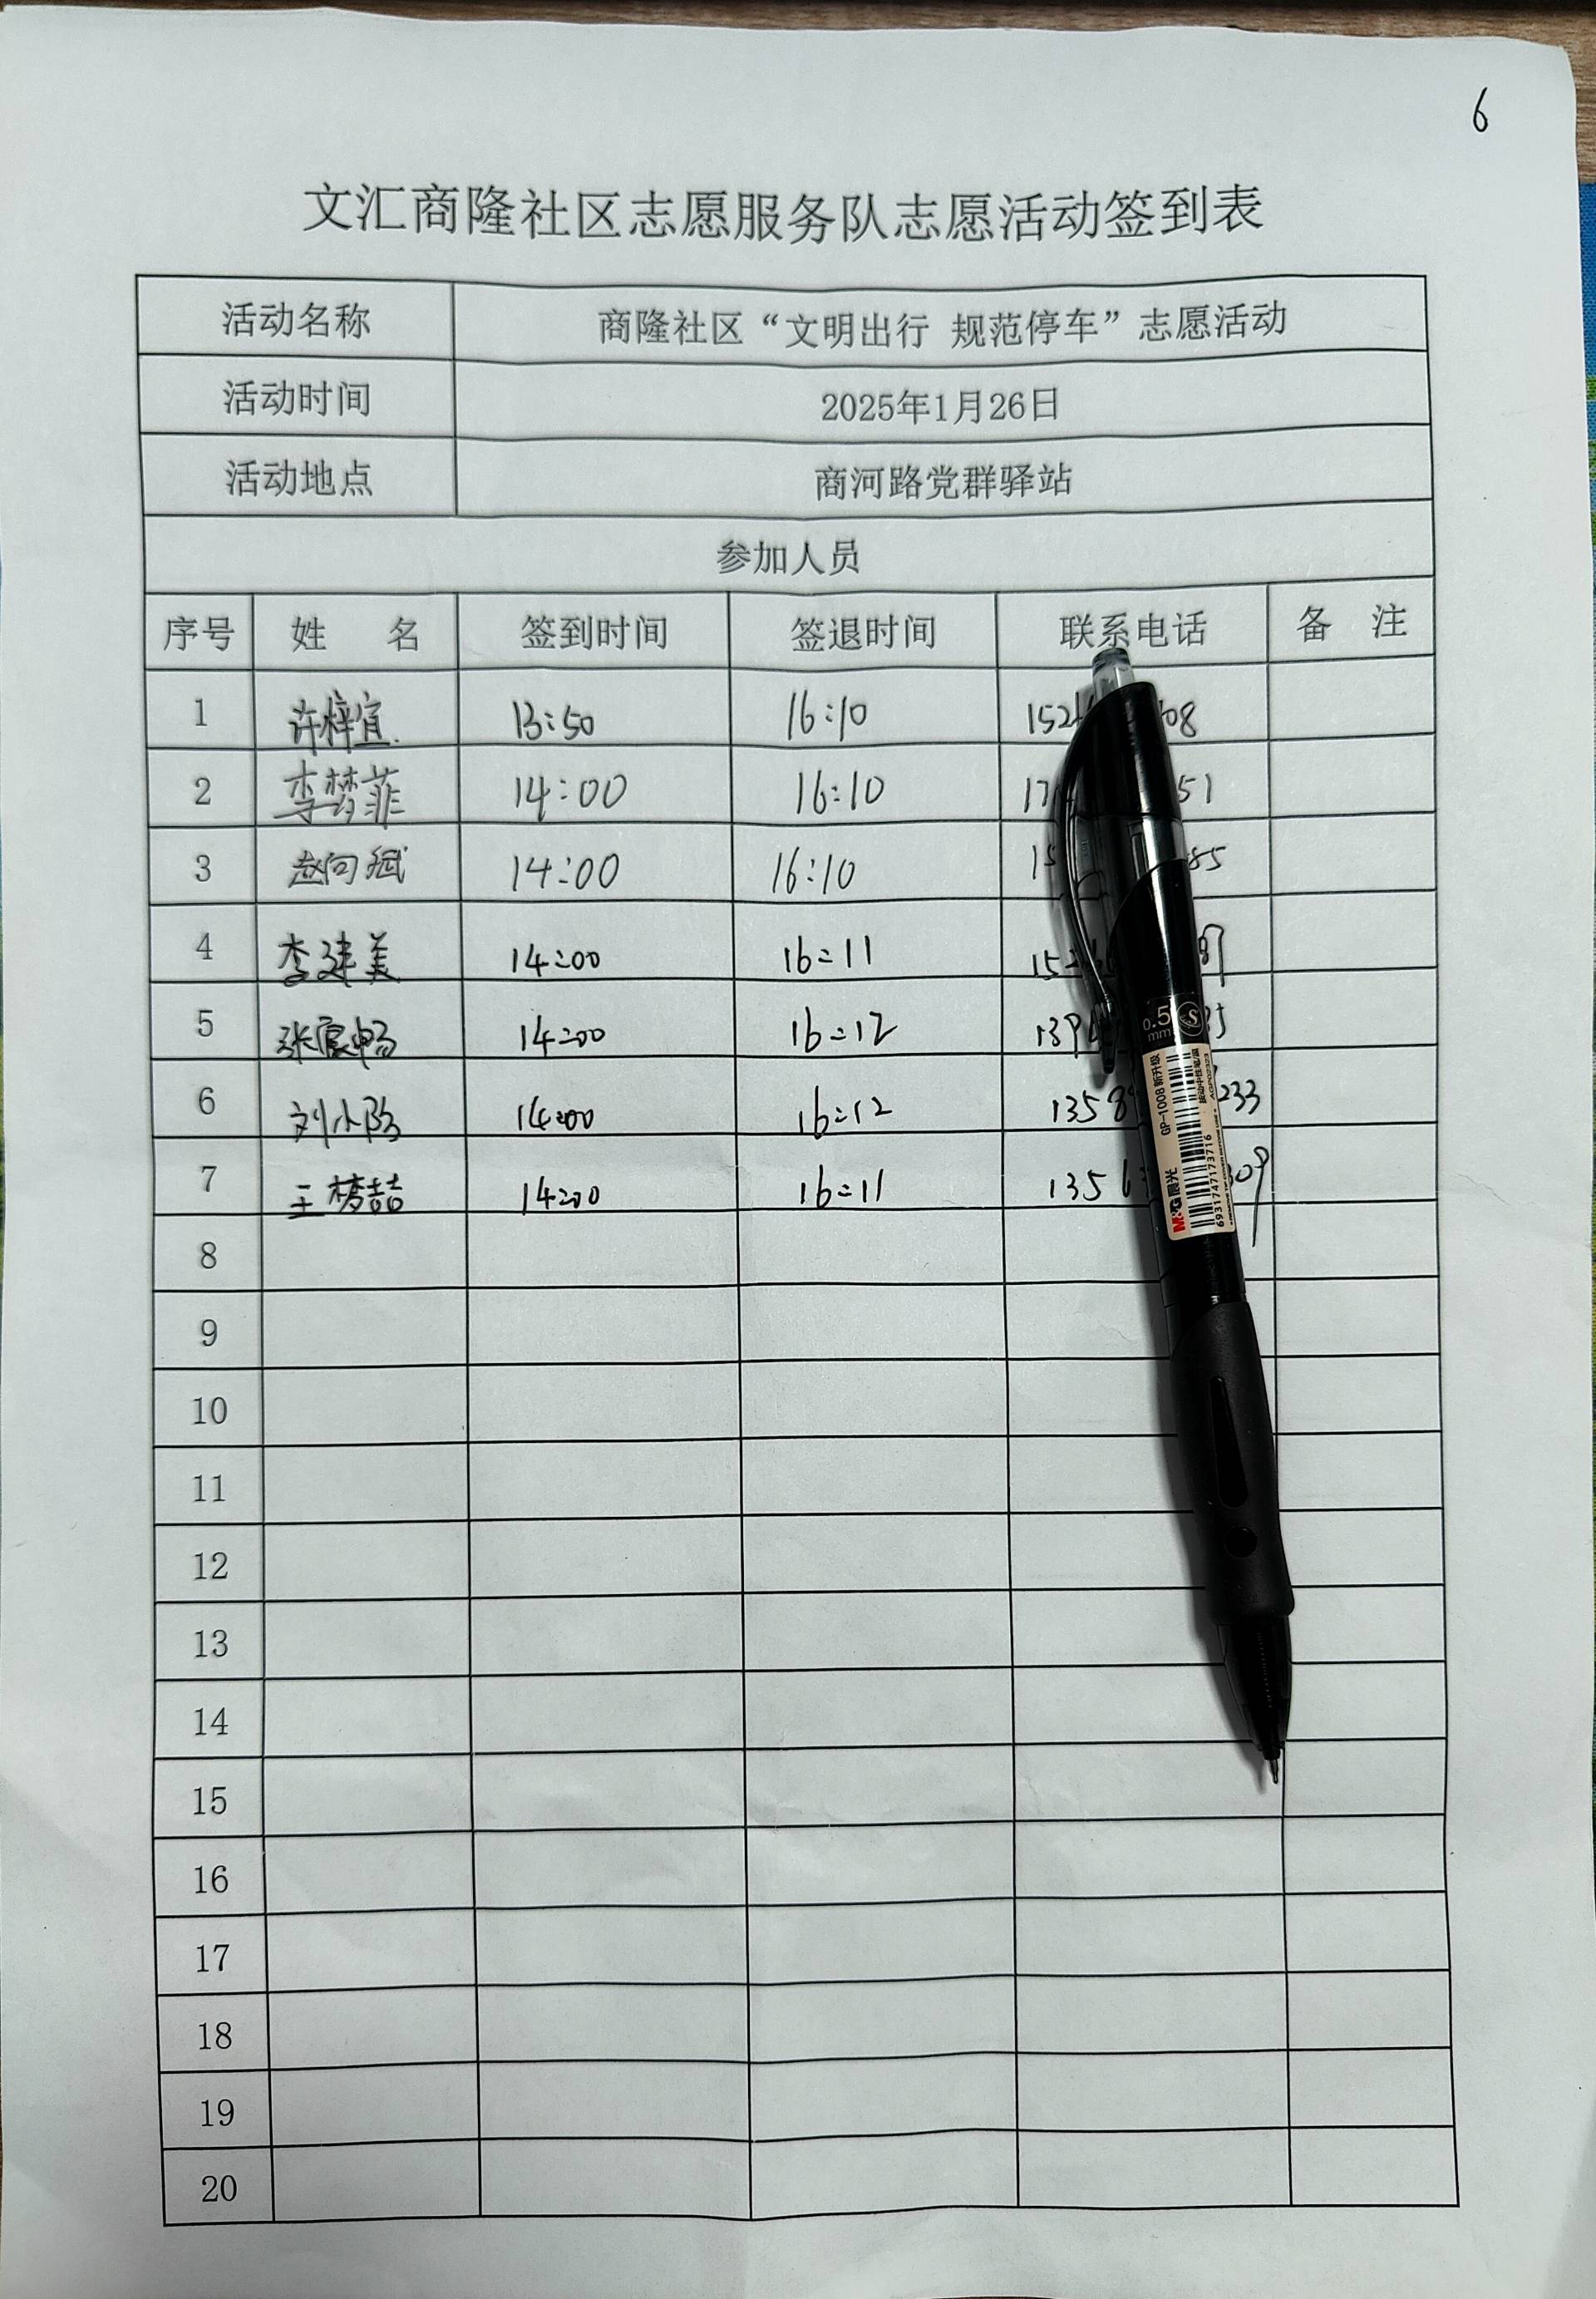 6
文汇商隆社区志愿服务队志愿活动签到表
活动名称 商隆社区“文明出行 规范停车”志愿活动
活动时间 2025年1月26日
活动地点 商河路党群驿站
参加人员
序号 姓 名 签到时间 签退时间 联系电话 备 注
1 许梓宜 13:50 16:10
2 李梦菲 14:00 16:10
3 赵向斌 14:00 16:10
4 李建美 14:00 16:11
5 14:00 16:12
6 14:00 16:12
7 王梦喆 14:00 16:11
8
9
10
11
12
13
14
15
16
17
18
19
20
0.5
mm
GP-1008 新升级
M&G晨光
6931747173716